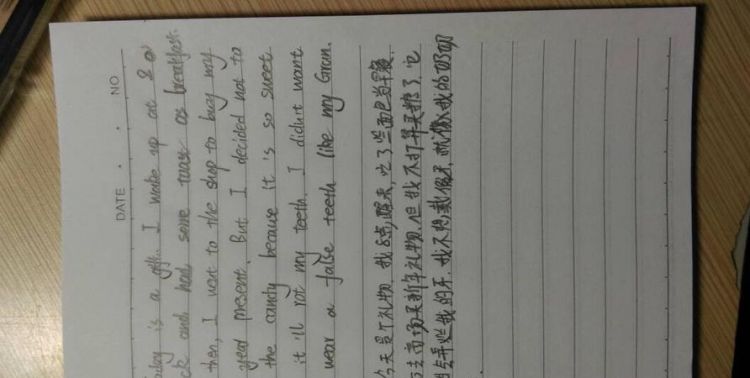 NO
DATE
day is a gift. I wake up at 8 o
ck and had some toast as breakfast.
then, I went to the shop to buy my
year present. But I decided not to
the candy because it's so sweet.
it'll rot my teeth. I didn't want
wear a false teeth like my Gran.
今天是个礼物 我8点醒来,吃了些面包当早餐.
去商场买新年礼物.但我不打算买糖了,它
会弄烂我的牙.我不想戴假牙.就像我的奶奶